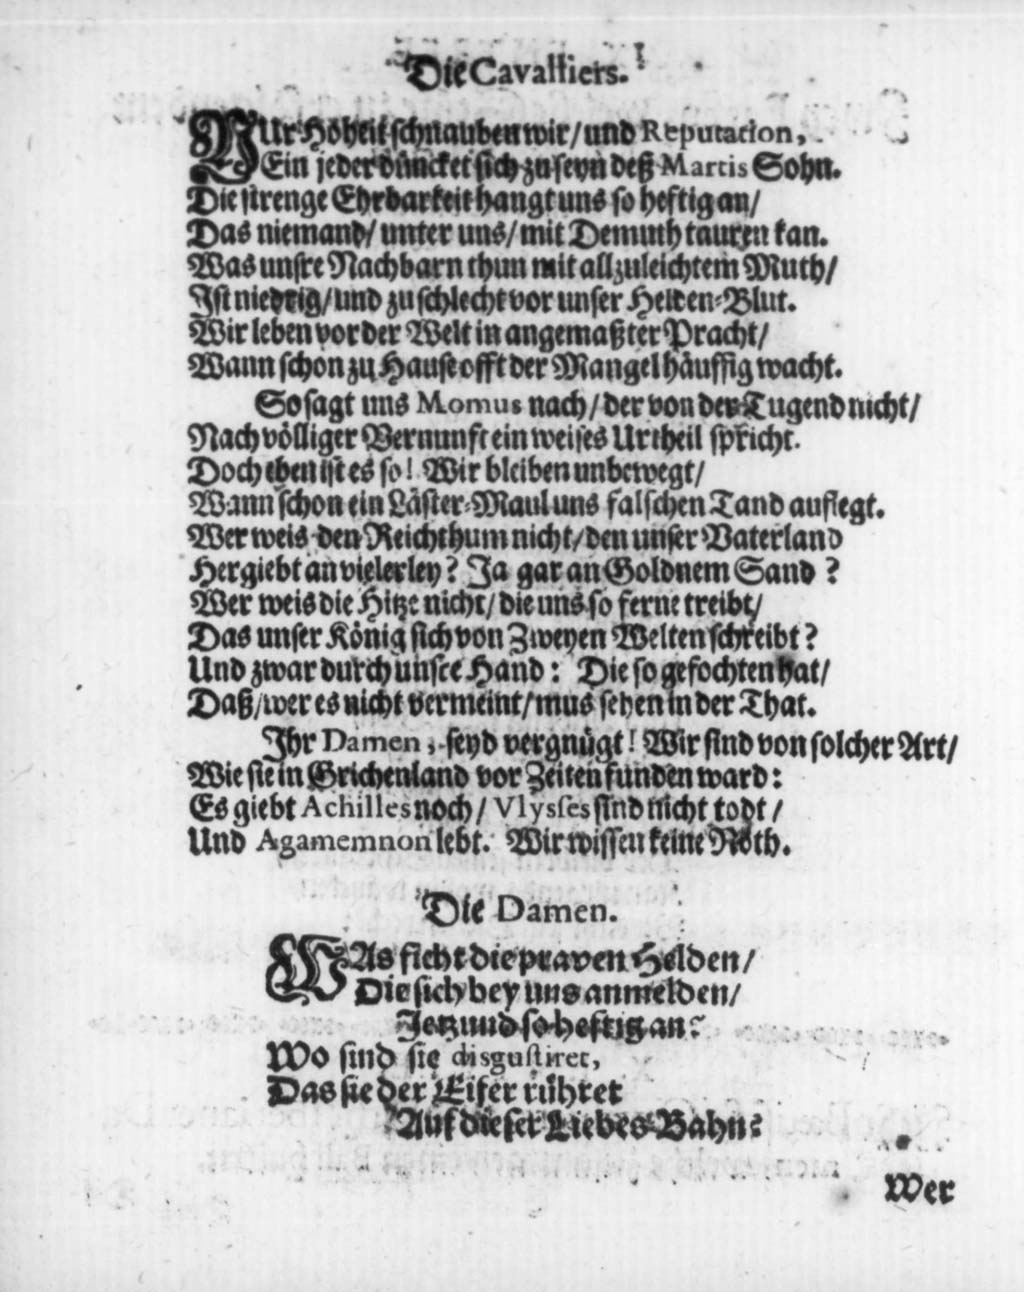 Die Cavalliers.
NUr Hoheit schnauben wir/ und Reputation,
Ein jeder düncket sich zu seyn deß Martis Sohn.
Die strenge Ehrbarkeit hangt uns so heftig an/
Das niemand/ unter uns/ mit Demuth tauren kan.
Was unsre Nachbarn thun mit allzuleichtem Muth/
Ist niedrig/ und zu schlecht vor unser Helden-Blut.
Wir leben vor der Welt in angemaßter Pracht/
Wann schon zu Hause offt der Mangel häuffig wacht.
So sagt uns Momus nach/ der von der Tugend nicht/
Nach völliger Vernunft ein weises Urtheil spricht.
Doch eben ist es so! Wir bleiben unbewegt/
Wann schon ein Läster-Maul uns falschen Tand auflegt.
Wer weis den Reichthum nicht/ den unser Vaterland
Hergiebt an vielerley? Ja gar an Goldnem Sand?
Wer weis die Hitze nicht/ die uns so ferne treibt/
Das unser König sich von Zweyen Welten schreibt?
Und zwar durch unsre Hand: Die so gefochten hat/
Daß/ wer es nicht vermeint/ mus sehen in der That.
Ihr Damen, seyd vergnügt! Wir sind von solcher Art/
Wie sie in Grichenland vor Zeiten funden ward:
Es giebt Achilles noch/ Vlysses sind nicht todt/
Und Agamemnon lebt. Wir wissen keine Noth.
Die Damen.
WAs ficht die praven Helden/
Die sich bey uns anmelden/
Jetzund so heftig an?
Wo sind sie disgustiret,
Das sie der Eifer rühret
Auf dieser Liebes-Bahn?
Wer